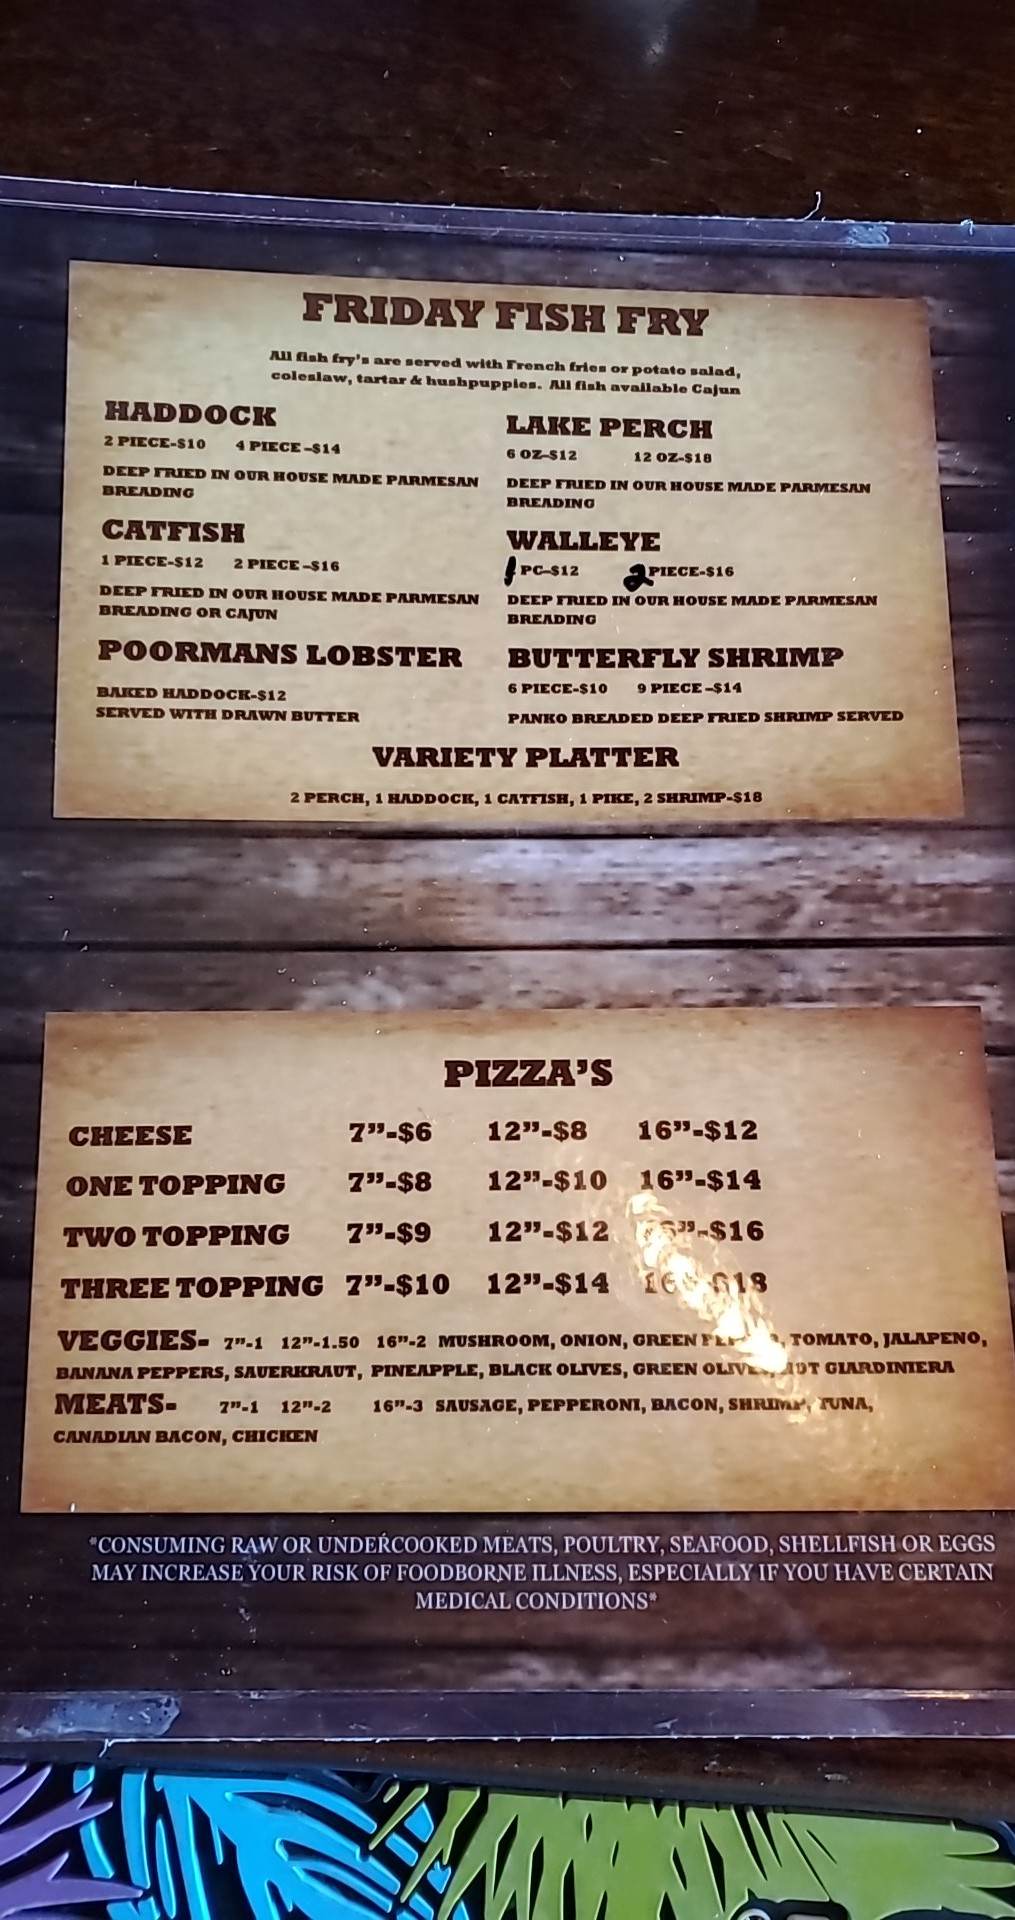 FRIDAY FISH FRY
All fish fry's are served with French fries or potato salad,
coleslaw, tartar & hushpuppies. All fish available Cajun
HADDOCK
2 PIECE-$10 4 PIECE-$14
DEEP FRIED IN OUR HOUSE MADE PARMESAN
BREADING
LAKE PERCH
6 OZ-$12 12 OZ-$18
DEEP FRIED IN OUR HOUSE MADE PARMESAN
BREADING
CATFISH
1 PIECE-$12 2 PIECE-$16
DEEP FRIED IN OUR HOUSE MADE PARMESAN
BREADING OR CAJUN
WALLEYE
1 PC-$12 2 PIECE-$16
DEEP FRIED IN OUR HOUSE MADE PARMESAN
BREADING
POORMANS LOBSTER
BAKED HADDOCK-$12
SERVED WITH DRAWN BUTTER
BUTTERFLY SHRIMP
6 PIECE-$10 9 PIECE-$14
PANKO BREADED DEEP FRIED SHRIMP SERVED
VARIETY PLATTER
2 PERCH, 1 HADDOCK, 1 CATFISH, 1 PIKE, 2 SHRIMP-$18
PIZZA'S
CHEESE 7"-$6 12"-$8 16"-$12
ONE TOPPING 7"-$8 12"-$10 16"-$14
TWO TOPPING 7"-$9 12"-$12 16"-$16
THREE TOPPING 7"-$10 12"-$14 16"-$18
VEGGIES- 7"-1 12"-1.50 16"-2 MUSHROOM, ONION, GREEN TOMATO, JALAPENO,
BANANA PEPPERS, SAUERKRAUT, PINEAPPLE, BLACK OLIVES, GREEN OLIVES, HOT GIARDINIERA
MEATS- 7"-1 12"-2 16"-3 SAUSAGE, PEPPERONI, BACON, SHRIMP, TUNA,
CANADIAN BACON, CHICKEN
*CONSUMING RAW OR UNDERCOOKED MEATS, POULTRY, SEAFOOD, SHELLFISH OR EGGS
MAY INCREASE YOUR RISK OF FOODBORNE ILLNESS, ESPECIALLY IF YOU HAVE CERTAIN
MEDICAL CONDITIONS*